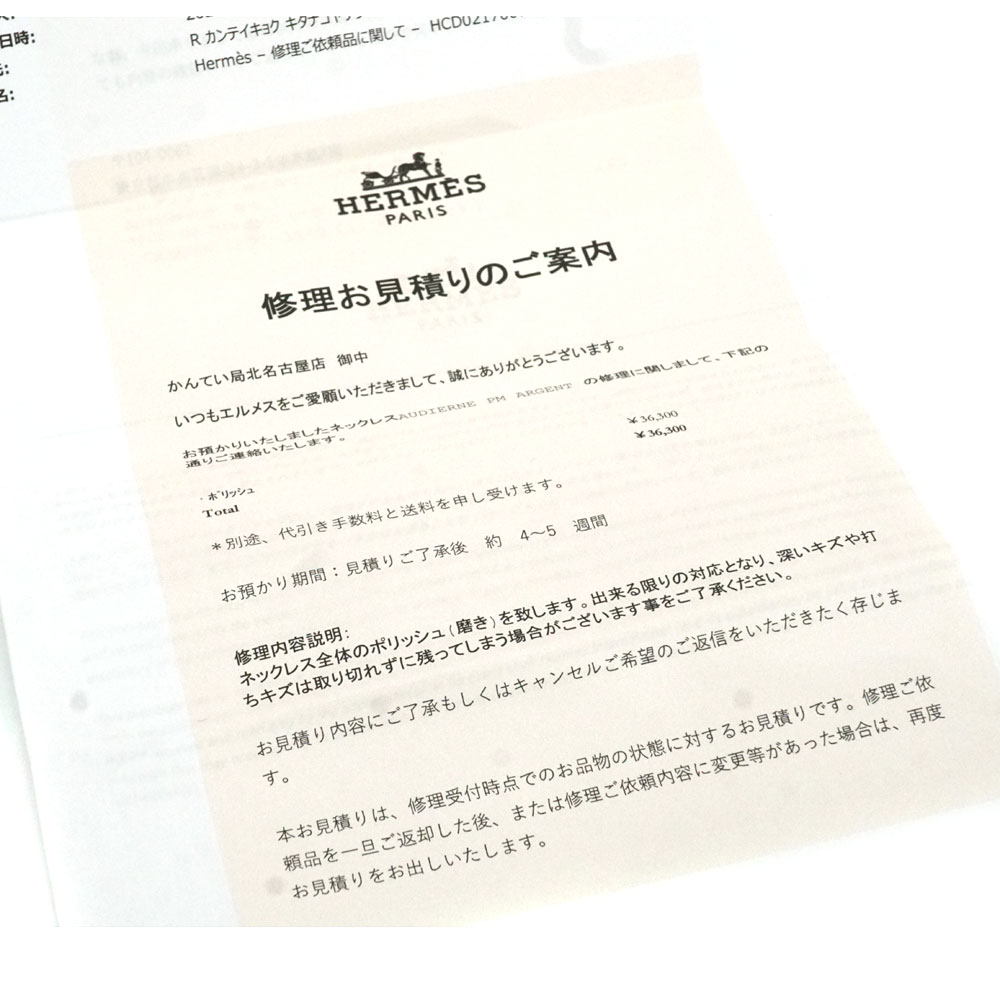 日時:
R カンテイキョク キタナゴヤ
Hermès – 修理ご依頼品に関して – HCD02
HERMÈS
PARIS
修理お見積りのご案内
かんてい局北名古屋店 御中
いつもエルメスをご愛顧いただきまして、誠にありがとうございます。
お預かりいたしましたネックレスAUDIERNE PM ARGENT の修理に関しまして、下記の
通りご連絡いたします。
・ポリッシュ ￥36,300
Total ￥36,300
＊別途、代引き手数料と送料を申し受けます。
お預かり期間：見積りご了承後 約 4～5 週間
修理内容説明：
ネックレス全体のポリッシュ（磨き）を致します。出来る限りの対応となり、深いキズや打
ちキズは取り切れずに残ってしまう場合がございます事をご了承ください。
お見積り内容にご了承もしくはキャンセルご希望のご返信をいただきたく存じま
す。
本お見積りは、修理受付時点でのお品物の状態に対するお見積りです。修理ご依
頼品を一旦ご返却した後、または修理ご依頼内容に変更等があった場合は、再度
お見積りをお出しいたします。